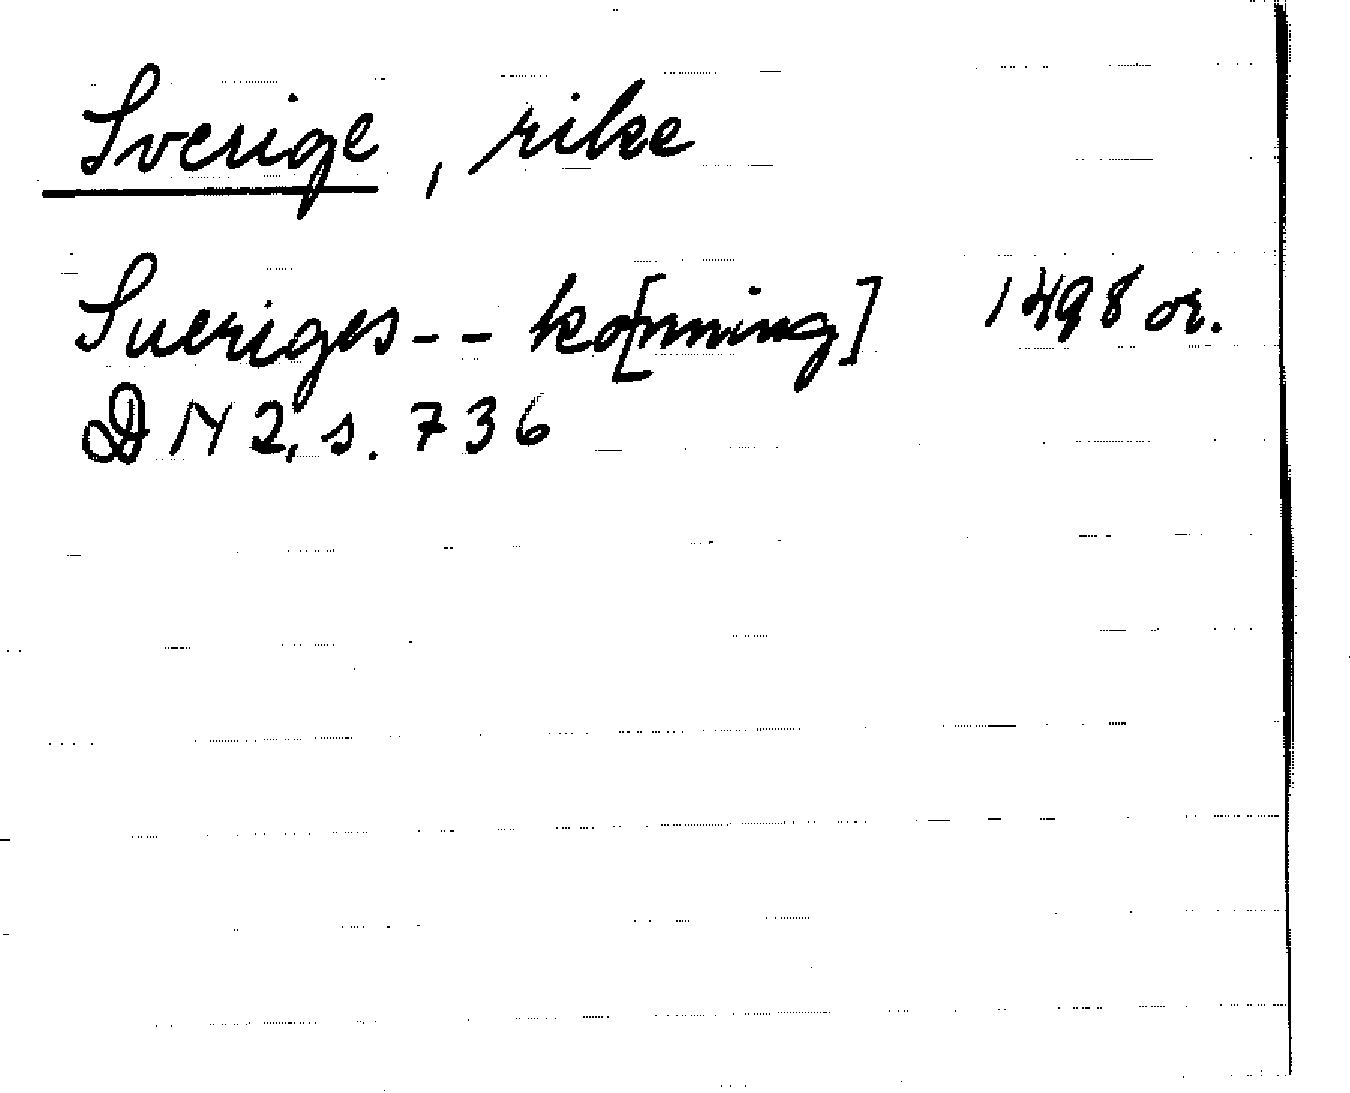 Sverige, rike
Sueriges -- ko[nning] 1498 or.
DN 2, s. 736